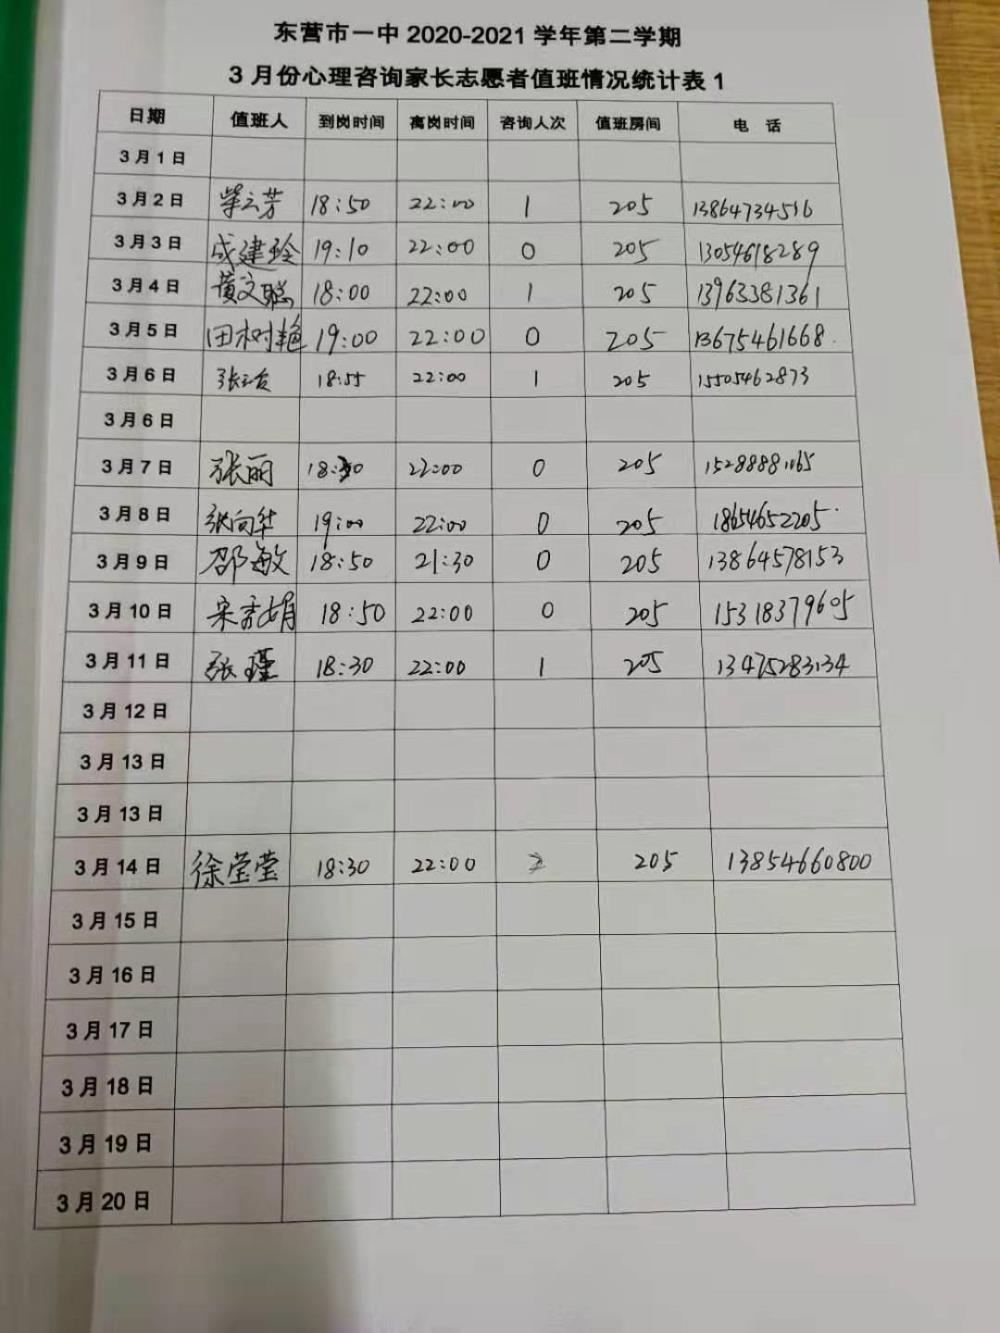 东营市一中 2020-2021 学年第二学期
3 月份心理咨询家长志愿者值班情况统计表 1
日期 值班人 到岗时间 离岗时间 咨询人次 值班房间 电 话
3 月 1 日
3 月 2 日 柴云芳 18:50 22:00 1 205 13864734516
3 月 3 日 成建玲 19:10 22:00 0 205 13054618289
3 月 4 日 黄文聪 18:00 22:00 1 205 13963381361
3 月 5 日 田树艳 19:00 22:00 0 205 13675461668
3 月 6 日 18:55 22:00 1 205 15505462873
3 月 6 日
3 月 7 日 张丽 18:30 22:00 0 205
3 月 8 日 张向华 19:00 22:00 0 205 18654652205
3 月 9 日 邵敏 18:50 21:30 0 205 13864578153
3 月 10 日 宋秀娟 18:50 22:00 0 205 15318379605
3 月 11 日 张瑾 18:30 22:00 1 205 13475283134
3 月 12 日
3 月 13 日
3 月 13 日
3 月 14 日 徐莹莹 18:30 22:00 2 205 13854660800
3 月 15 日
3 月 16 日
3 月 17 日
3 月 18 日
3 月 19 日
3 月 20 日